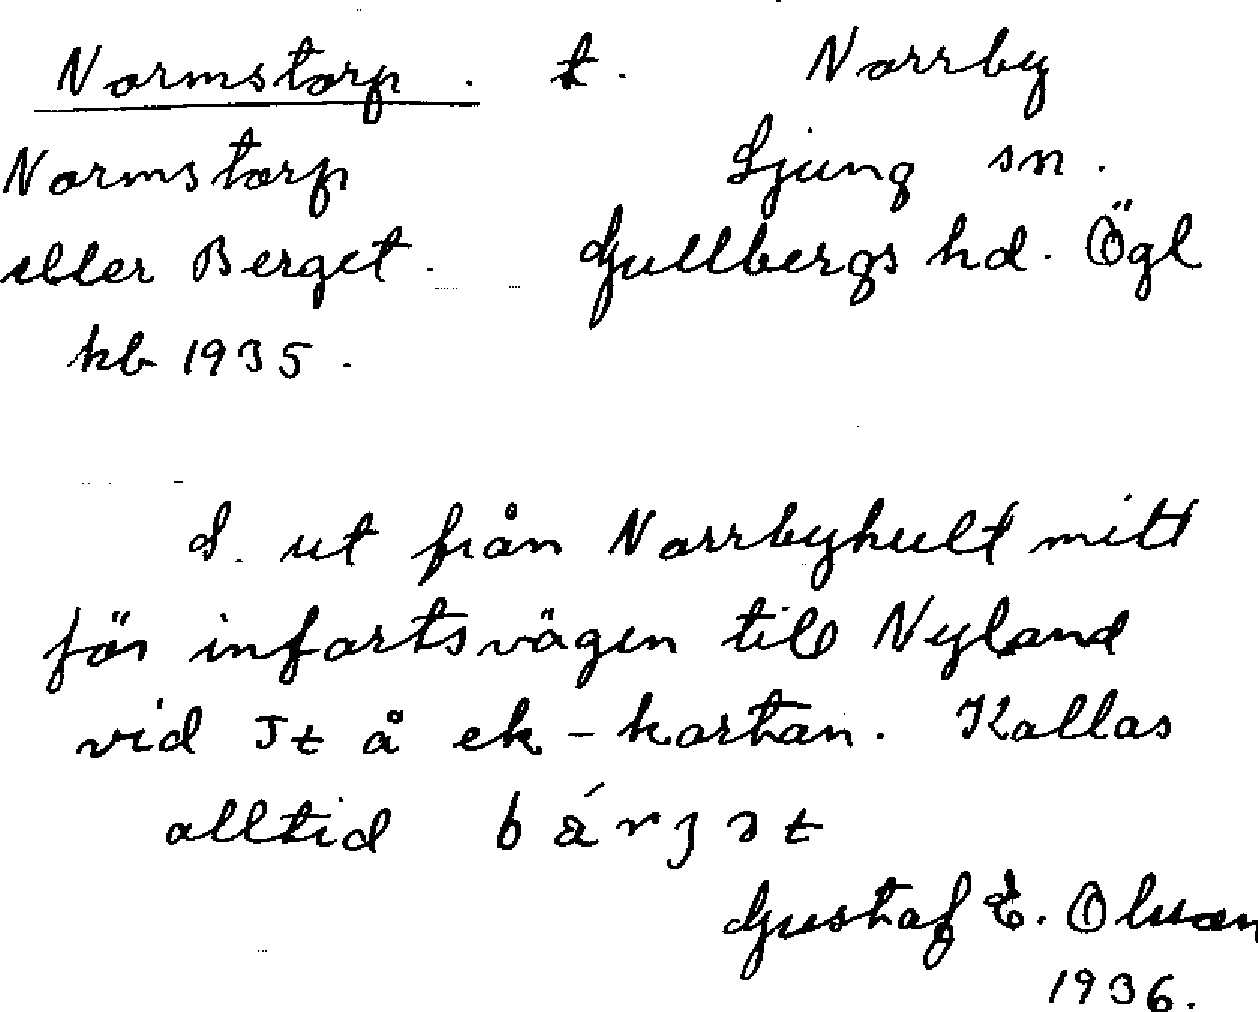 Normstorp. t. Norrby
Normstorp Ljung sn.
eller Berget. Gullbergs hd. Ögl
kb 1935.
S. ut från Norrbyhult mitt
för infartsvägen till Nyland
vid Jt å ek-kartan. Kallas
alltid
Gustaf E. Olsson
1936.